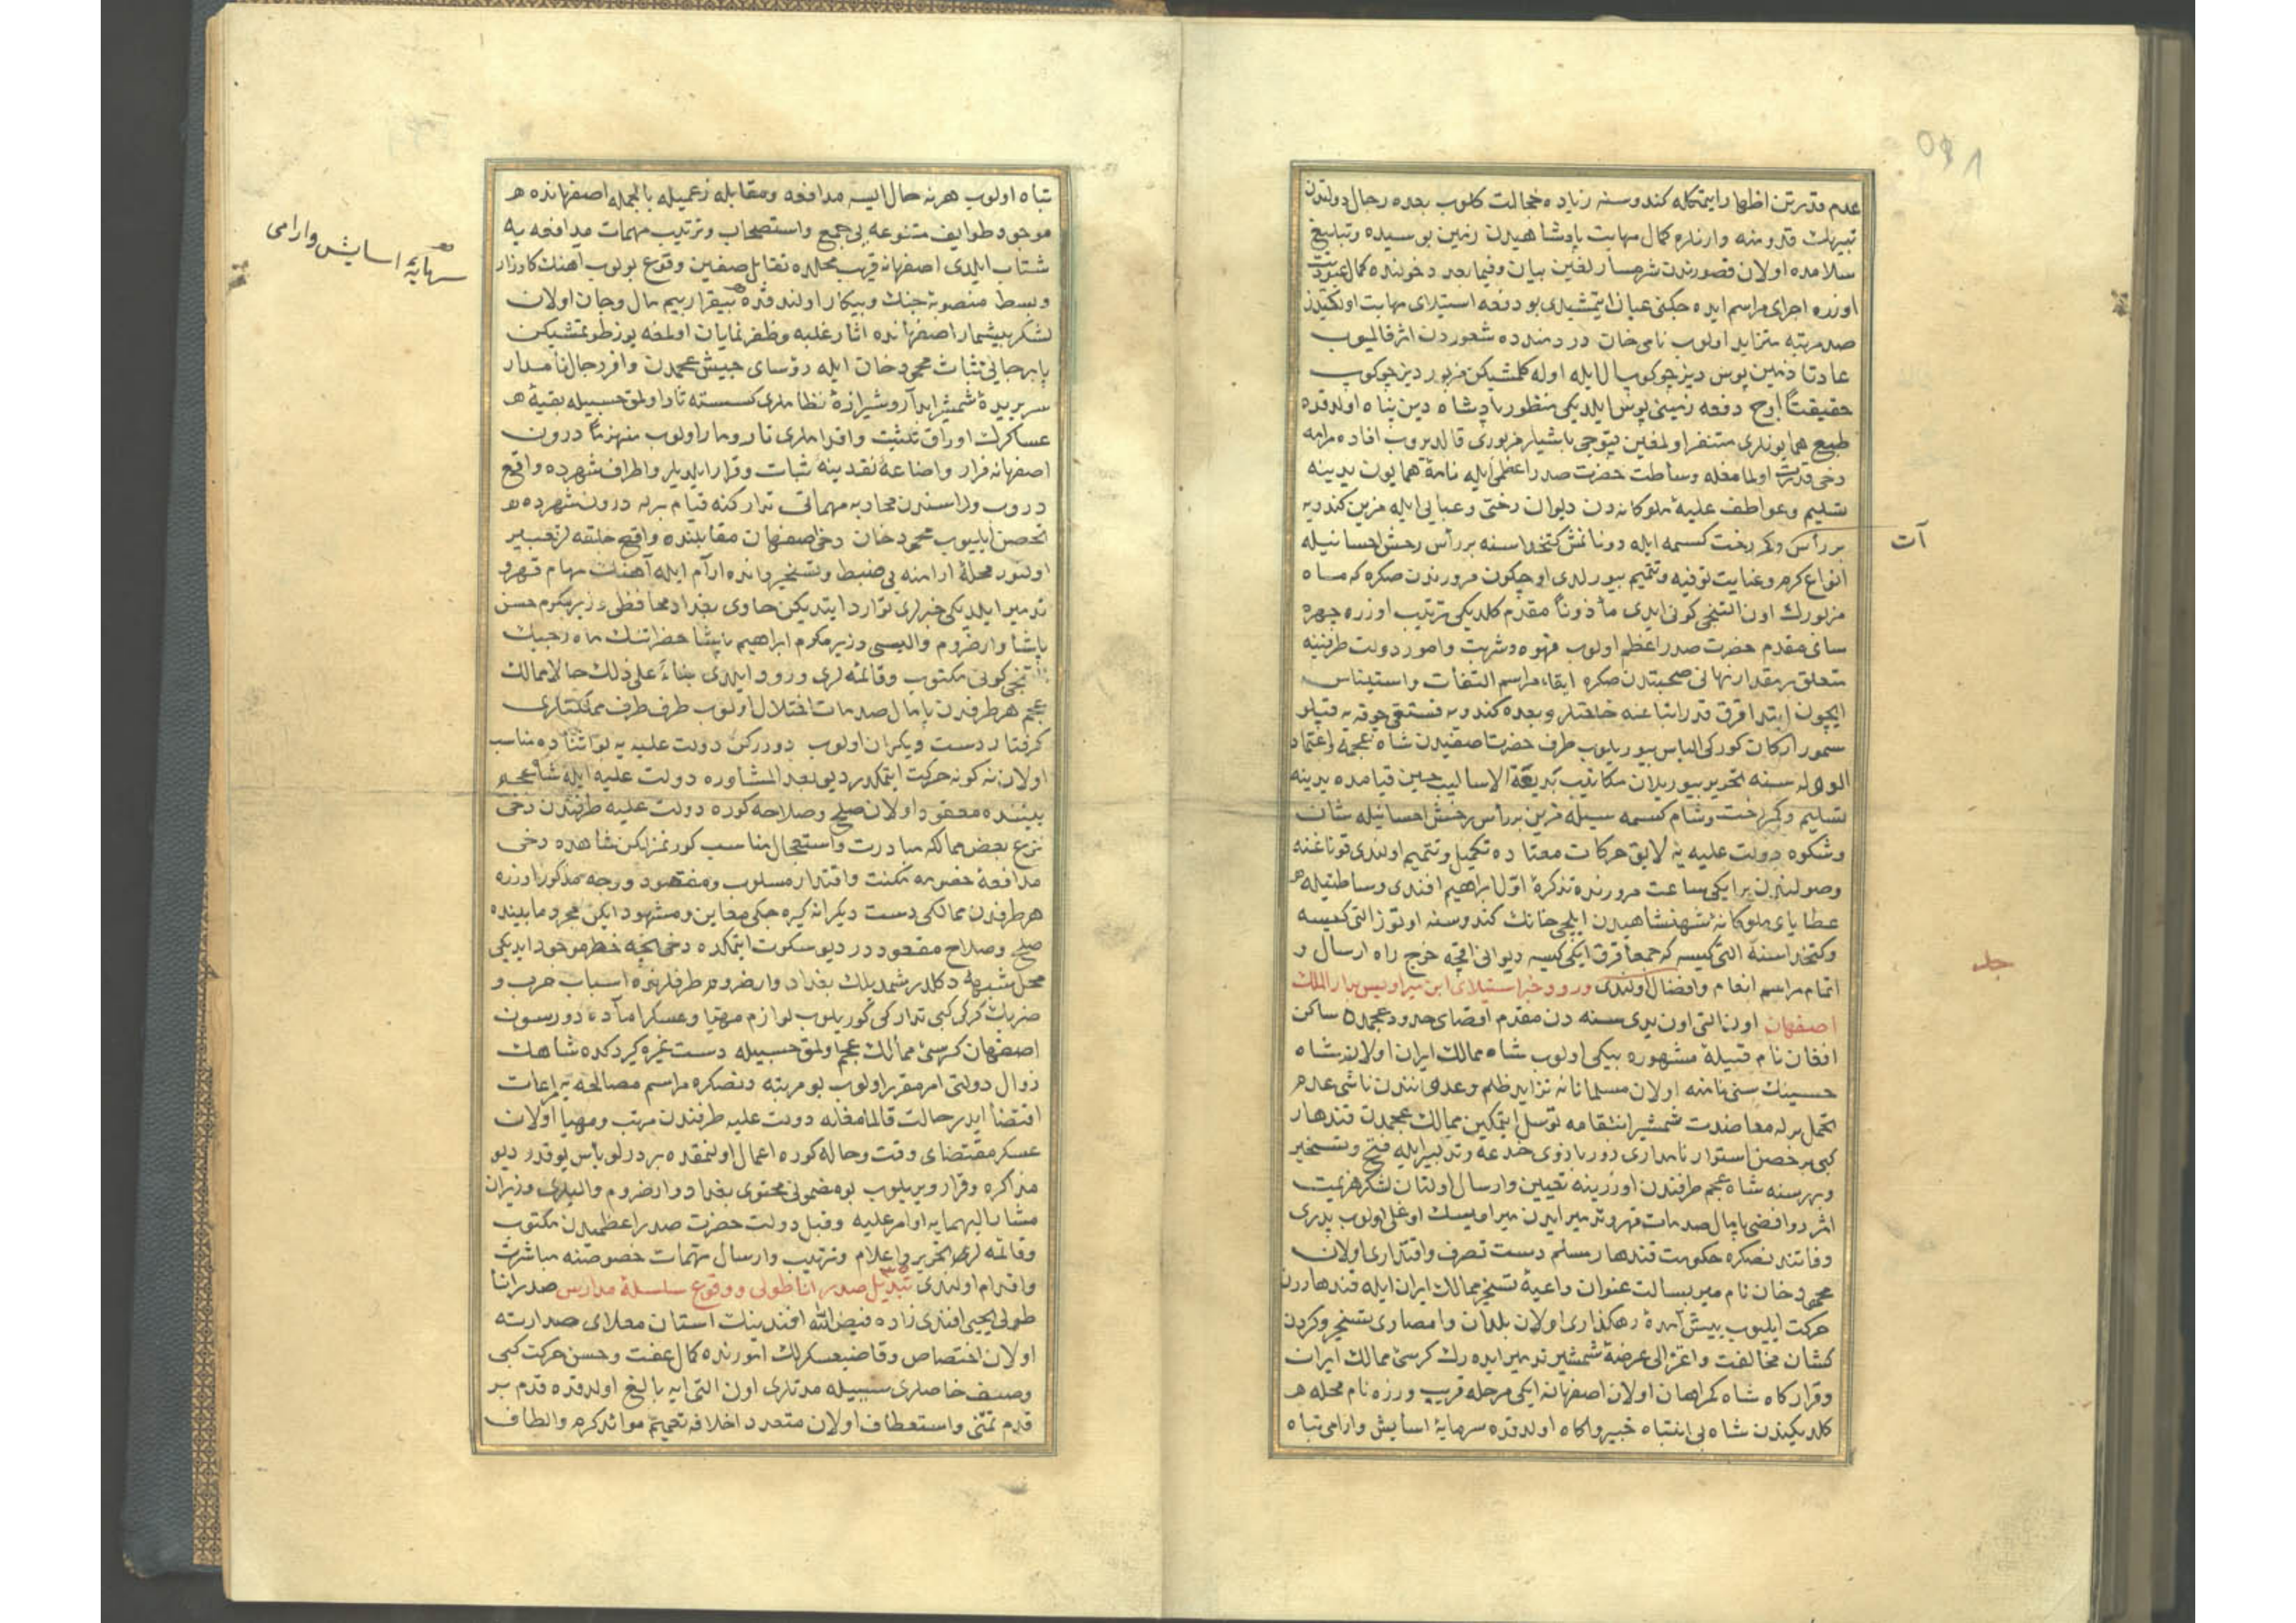 عدم قدرتن اظهار ایتمكله كندوسنه زیاده خجالت كلوب بعده رجال دولتدن
قدومنه وارنلره كمال مهابت پادشاهیدن زمین بوسیده و تبلیغ
سلامده اولان قصورندن شرمسار لغین بیان و فیما بعد دخولنده كمال عبودیت
اوزره اجرای مراسم ایده جكنی عیان ایتمشیدی بو دفعه استیلای مهابت اولكیدن
صد مرتبه متزاید اولوب نامی خان دردمندده شعوردن اثر قالمیوب
عادتا زمین پوس دیز چوكوب ال ایله اوله كلمشیكن مزبور دیز چوكوب
حقیقتاً اوچ دفعه زمینی پوس ایلدیكی منظور پادشاه دین پناه اولدقده
طبع همایونلری متنفر اولمغین قپوجی باشیلر مزبوری قالدیروب افاده مرامه
دخی قدرت اولمامغله وساطت حضرت صدر اعظمی ایله نامهٔ همایون یدینه
تسلیم و عواطف علیهٔ ملوكانه دن دیوان رختی و عبایی ایله مزین كندویه
بر رأس و رخت كسمه ایله دونانمش كتخداسنه بر رأس رخش احسانیله
آت
انواع كرم و عنایت توفیه و تتمیم بیورلدی اوچ كون مرورندن صكره كه ماه
مزبورك اون التنجی كونی ایدی مأذوناً مقدم كلدیكی ترتیب اوزره چهره
سای مقدم حضرت صدر اعظم اولوب قهوه و شربت و امور دولت طرفینه
متعلق بر مقدار نهانی صحبتدن صكره ایقاء مراسم التفات و استیناس
ایچون ابتدا قرق قدر اتباعنه خلعتلر و بعده كندویه فستقی چوقه یه قپلو
سمور اركان كوركی الباس بیوریلوب طرف حضرت اصفیدن شاه عجمه و اعتماد
الدوله سنه تحریر بیوریلان مكاتیب بدیعة الاسالیب حین قیامده یدینه
تسلیم و رخت و شام كسمه سیله مزین بر رأس رخش احسانیله شان
و شكوه دولت علیه یه لایق حركات معتاده تكمیل و تتمیم اولندی قوناغنه
وصولندن بر ایكی ساعت مرورنده تذكرهٔ اول ابراهیم افندی وساطتیله
عطایای ملوكانهٔ شهنشاهیدن ایلچی خانك كندوسنه اوتوز التی كیسه
و كتخداسنه التی كیسه كه جمعاً قرق ایكی كیسه دیوانی اقچه خرج راه ارسال و
اتمام مراسم انعام و افضال اولندی ورود خبر استیلای ابن میر اویس بدار الملك
اصفهان اون التی اون یدی سنه دن مقدم اقصای حدود عجمده ساكن
افغان نام قبیلهٔ مشهوره بیكی اولوب شاه ممالك ایران اولان شاه
حسینك سنی نامنه اولان مسلمانانه تزاید ظلم و عدواننندن ناشی عدم
تحمل برله معاضدت شمشیر انتقامه توسل ایتمكین ممالك عجمدن قندهار
كبی بر حصن استوار نامداری زور بازوی خدعه و تدبیر ایله فتح و تسخیر
و بهر سنه شاه عجم طرفندن اوزرینه تعیین و ارسال اولنان لشكر هزیمت
اثر روافضی پایمال صدمات قهر و تدمیر ایدن میر اویسك اوغلی اولوب پدری
وفاتندنصكره حكومت قندهار مسلم دست تصرف و اقتداری اولان
محمود خان نام میر بسالت عنوان داعیهٔ تسخیر ممالك ایران ایله قندهاردن
حركت ایلیوب پیش آمدهٔ رهكذاری اولان بلدان و امصاری تسخیر و كردن
كشان مخالفت و اعتزالی عرضهٔ شمشیر تدمیر ایده رك كرسئ ممالك ایران
و قراركاه شاه كمراهان اولان اصفهانه ایكی مرحله قریب ورزه نام محله
كلدیكیندن شاه بی انتباه خبیر و اكاه اولدقده سرمایهٔ اسایش و ارامی تباه
تباه اولوب هر نه حال ایسه مدافعه و مقابله زعمیله بالجمله اصفهانده
موجود طوایف متنوعه یی جمع و استصحاب و ترتیب مهمات مدافعه یه
شتاب ایلدی اصفهانه قریب محلده تقابل صفین وقوع بولوب آهنك كارزار
سرمایهٔ اسایش و ارامی
و بسط منصوبهٔ جنك و پیكار اولندقده بیقرار بیم مال و جان اولان
لشكر بیشمار اصفهانده آثار غلبه و ظفر نمایان اولمغه یوز طوتمشیكن
پابرجایی ثبات محمود خان ایله رؤسای جیش عجمدن وافر رجال نامدار
سر بریدهٔ شمشیر ابدار و شیرازهٔ نظاملری كسسته تار اولمق حسبیله بقیهٔ
عساكرك اوراق تثبت و اقداملری تار و مار اولوب منهزماً درون
اصفهانه فرار و اضاعهٔ نقدینه ثبات و قرار ایلدیلر و اطراف شهرده واقع
دروب و لراسندن محاربه مهماتی تداركنه قیام برله درون شهرده
تحصن ایلیوب محمود خان دخی اصفهان مقابلنده واقع جلفه لر تعبیر
اولنور محلهٔ ارامنه یی ضبط و تسخیر و انده ارام ایله آهنك سهام قهر و
تدمیر ایلدیكی خبرلری توارد ایتدیكن حاوی بغداد محافظی وزیر مكرم حسن
پاشا و ارضروم والیسی وزیر مكرم ابراهیم پاشا حضراتنك ماه رجبك
كونی مكتوب و قائمه لری ورود ایلدی بناءً علی ذلك حالا ممالك
عجم هر طرفدن پامال صدمات اختلال اولوب طرف طرف مملكتلری
كرفتار دست دیكران اولوب دوردركن دولت علیه یه بو اثناده مناسب
اولان نه كونه حركت ایتمكدر دیو بعد المشاوره دولت علیه ایله شاه عجم
بیننده معقود اولان صلح و صلاحه كوره دولت علیه طرفندن دخی
نزع بعض ممالكه مبادرت و استعجال مناسب كورنمز لكن شاهده دخی
مدافعهٔ خصومه مكنت و اقتدار مسلوب و مفقود و وجه مذكور اوزره
هر طرفدن ممالكی دست دیكرانه كیره جكی معاین و مشهود ایكن مجرد مابینده
صلح و صلاح معقوددر دیو سكوت ایتمكده دخی نیجه خطر موجود ایدیكی
محل شبهه دكلدر شمدیلك بغداد و ارضروم طرفلرنده اسباب حرب و
ضربك كركی كبی تداركی كوریلوب لوازم مهیا و عسكر آماده دورسون
اصفهان كرسئ ممالك عجم اولمق حسبیله دست غیره كیردكده شاهك
زوال دولتی امر مقرر اولوب بو مرتبه دنصكره مراسم مصالحه یه مراعات
اقتضا ایدر حالت قالمامغله دولت علیه طرفندن مرتب و مهیا اولان
عسكر مقتضای وقت و حاله كوره اعمال اولنمقده بر درلو بأس یوقدر دیو
مذاكره و قرار ویریلوب بو مضمونی محتوی بغداد و ارضروم والیلری وزیران
مشار الیهمایه اوامر علیه و قبل دولت حضرت صدر اعظمیدن مكتوب
و قائمه لری تحریر و اعلام و ترتیب و ارسال مهمات خصوصنه مباشرت
و اقدام اولندی تبدیل صدر اناطولی و وقوع سلسلهٔ مدارس صدر انا
طولی یحیی افندی زاده فیض الله افندینك آستان معلای صدارته
اولان اختصاص و قاضیعسكرلك امورنده كمال عفت و حسن حركت كبی
وصف خاصلری سببیله مدتلری اون التی ایه بالغ اولدقده قدم بر
قدم تمنی و استعطاف اولان متعدد اخلافه تعمیم موائد كرم و الطاف